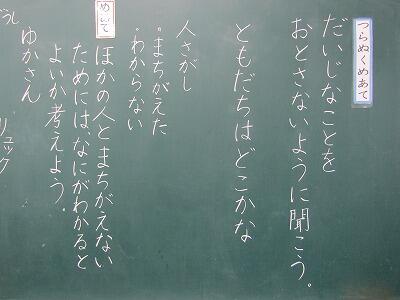 つらぬくめあて
だいじなことを
おとさないように聞こう。
ともだちはどこかな
人さがし
・まちがえた
・わからない
めいて
ほかの人とまちがえない
ためには、なにがわかると
よいか考えよう。
ゆかさん
リュック